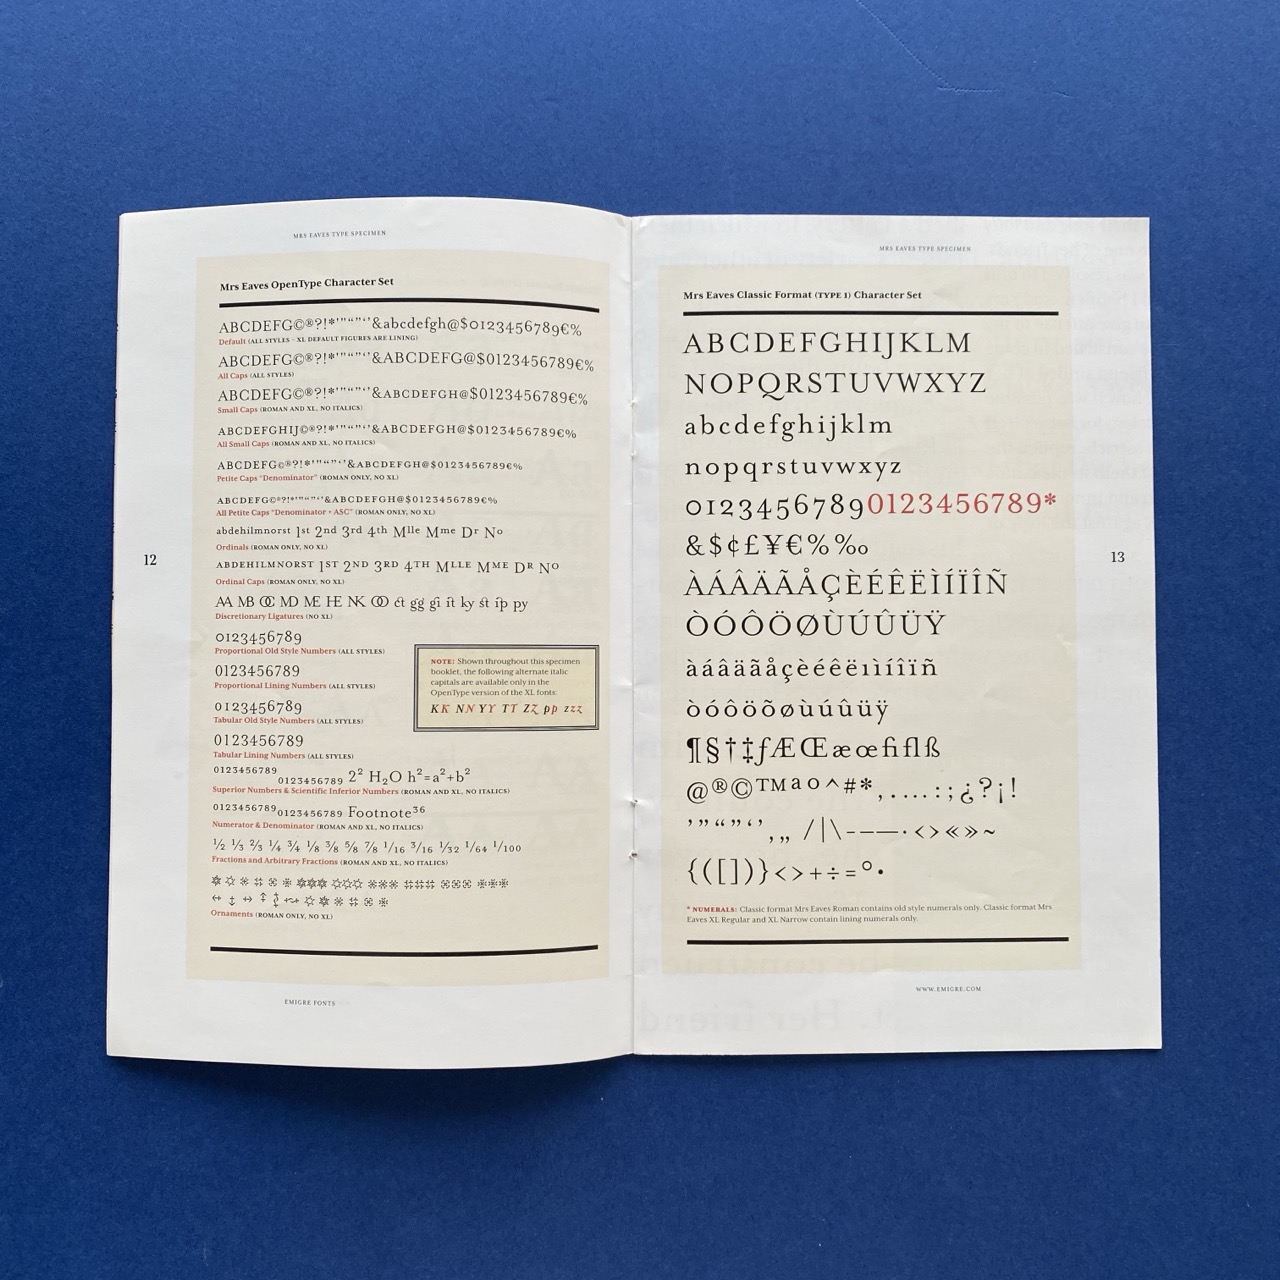 MRS EAVES TYPE SPECIMEN
Mrs Eaves OpenType Character Set
ABCDEFG©®?!*'"“”‘’&abcdefgh@$0123456789€%
Default (ALL STYLES - XL DEFAULT FIGURES ARE LINING)
ABCDEFG©®?!*'"“”‘’&ABCDEFG@$0123456789€%
All Caps (ALL STYLES)
ABCDEFG©®?!*'"“”‘’&ABCDEFGH@$0123456789€%
Small Caps (ROMAN AND XL, NO ITALICS)
ABCDEFGHIJ©®?!*'"“”‘’&ABCDEFGH@$0123456789€%
All Small Caps (ROMAN AND XL, NO ITALICS)
ABCDEFG©®?!*'"“”‘’&ABCDEFGH@$0123456789€%
Petite Caps “Denominator” (ROMAN ONLY, NO XL)
ABCDEFG©®?!*'"“”‘’&ABCDEFGH@$0123456789€%
All Petite Caps “Denominator + ASC” (ROMAN ONLY, NO XL)
abdehilmnorst 1st 2nd 3rd 4th Mlle Mme Dr No
Ordinals (ROMAN ONLY, NO XL)
ABDEHILMNORST 1ST 2ND 3RD 4TH MLLE MME DR NO
Ordinal Caps (ROMAN ONLY, NO XL)
AA MB OC MD ME HE NK OO ct gg gi it ky st ip py
Discretionary Ligatures (NO XL)
0123456789
Proportional Old Style Numbers (ALL STYLES)
0123456789
Proportional Lining Numbers (ALL STYLES)
0123456789
Tabular Old Style Numbers (ALL STYLES)
0123456789
Tabular Lining Numbers (ALL STYLES)
NOTE: Shown throughout this specimen
booklet, the following alternate italic
capitals are available only in the
OpenType version of the XL fonts:
KK NN YY TT ZZ pp zzz
⁰¹²³⁴⁵⁶⁷⁸⁹₀₁₂₃₄₅₆₇₈₉ 2² H₂O h²=a²+b²
Superior Numbers & Scientific Inferior Numbers (ROMAN AND XL, NO ITALICS)
⁰¹²³⁴⁵⁶⁷⁸⁹₀₁₂₃₄₅₆₇₈₉ Footnote³⁶
Numerator & Denominator (ROMAN AND XL, NO ITALICS)
½ ⅓ ⅔ ¼ ¾ ⅛ ⅜ ⅝ ⅞ 1/16 3/16 1/32 1/64 1/100
Fractions and Arbitrary Fractions (ROMAN AND XL, NO ITALICS)
Ornaments (ROMAN ONLY, NO XL)
12
EMIGRE FONTS
MRS EAVES TYPE SPECIMEN
Mrs Eaves Classic Format (TYPE 1) Character Set
ABCDEFGHIJKLM
NOPQRSTUVWXYZ
abcdefghijklm
nopqrstuvwxyz
01234567890123456789*
&$¢£¥€%‰
ÀÁÂÄÃÅÇÈÉÊËÌÍÏÎÑ
ÒÓÔÖØÙÚÛÜŸ
àáâäãåçèéêëıìíîïñ
òóôöõøùúûüÿ
¶§†‡ƒÆŒæœfiflß
@®©™ªº^#*,....:;¿?¡!
'"“”‘’‚„ /|\-–—·‹›«»~
{([])}<>+÷=°•
* NUMERALS: Classic format Mrs Eaves Roman contains old style numerals only. Classic format Mrs
Eaves XL Regular and XL Narrow contain lining numerals only.
13
WWW.EMIGRE.COM